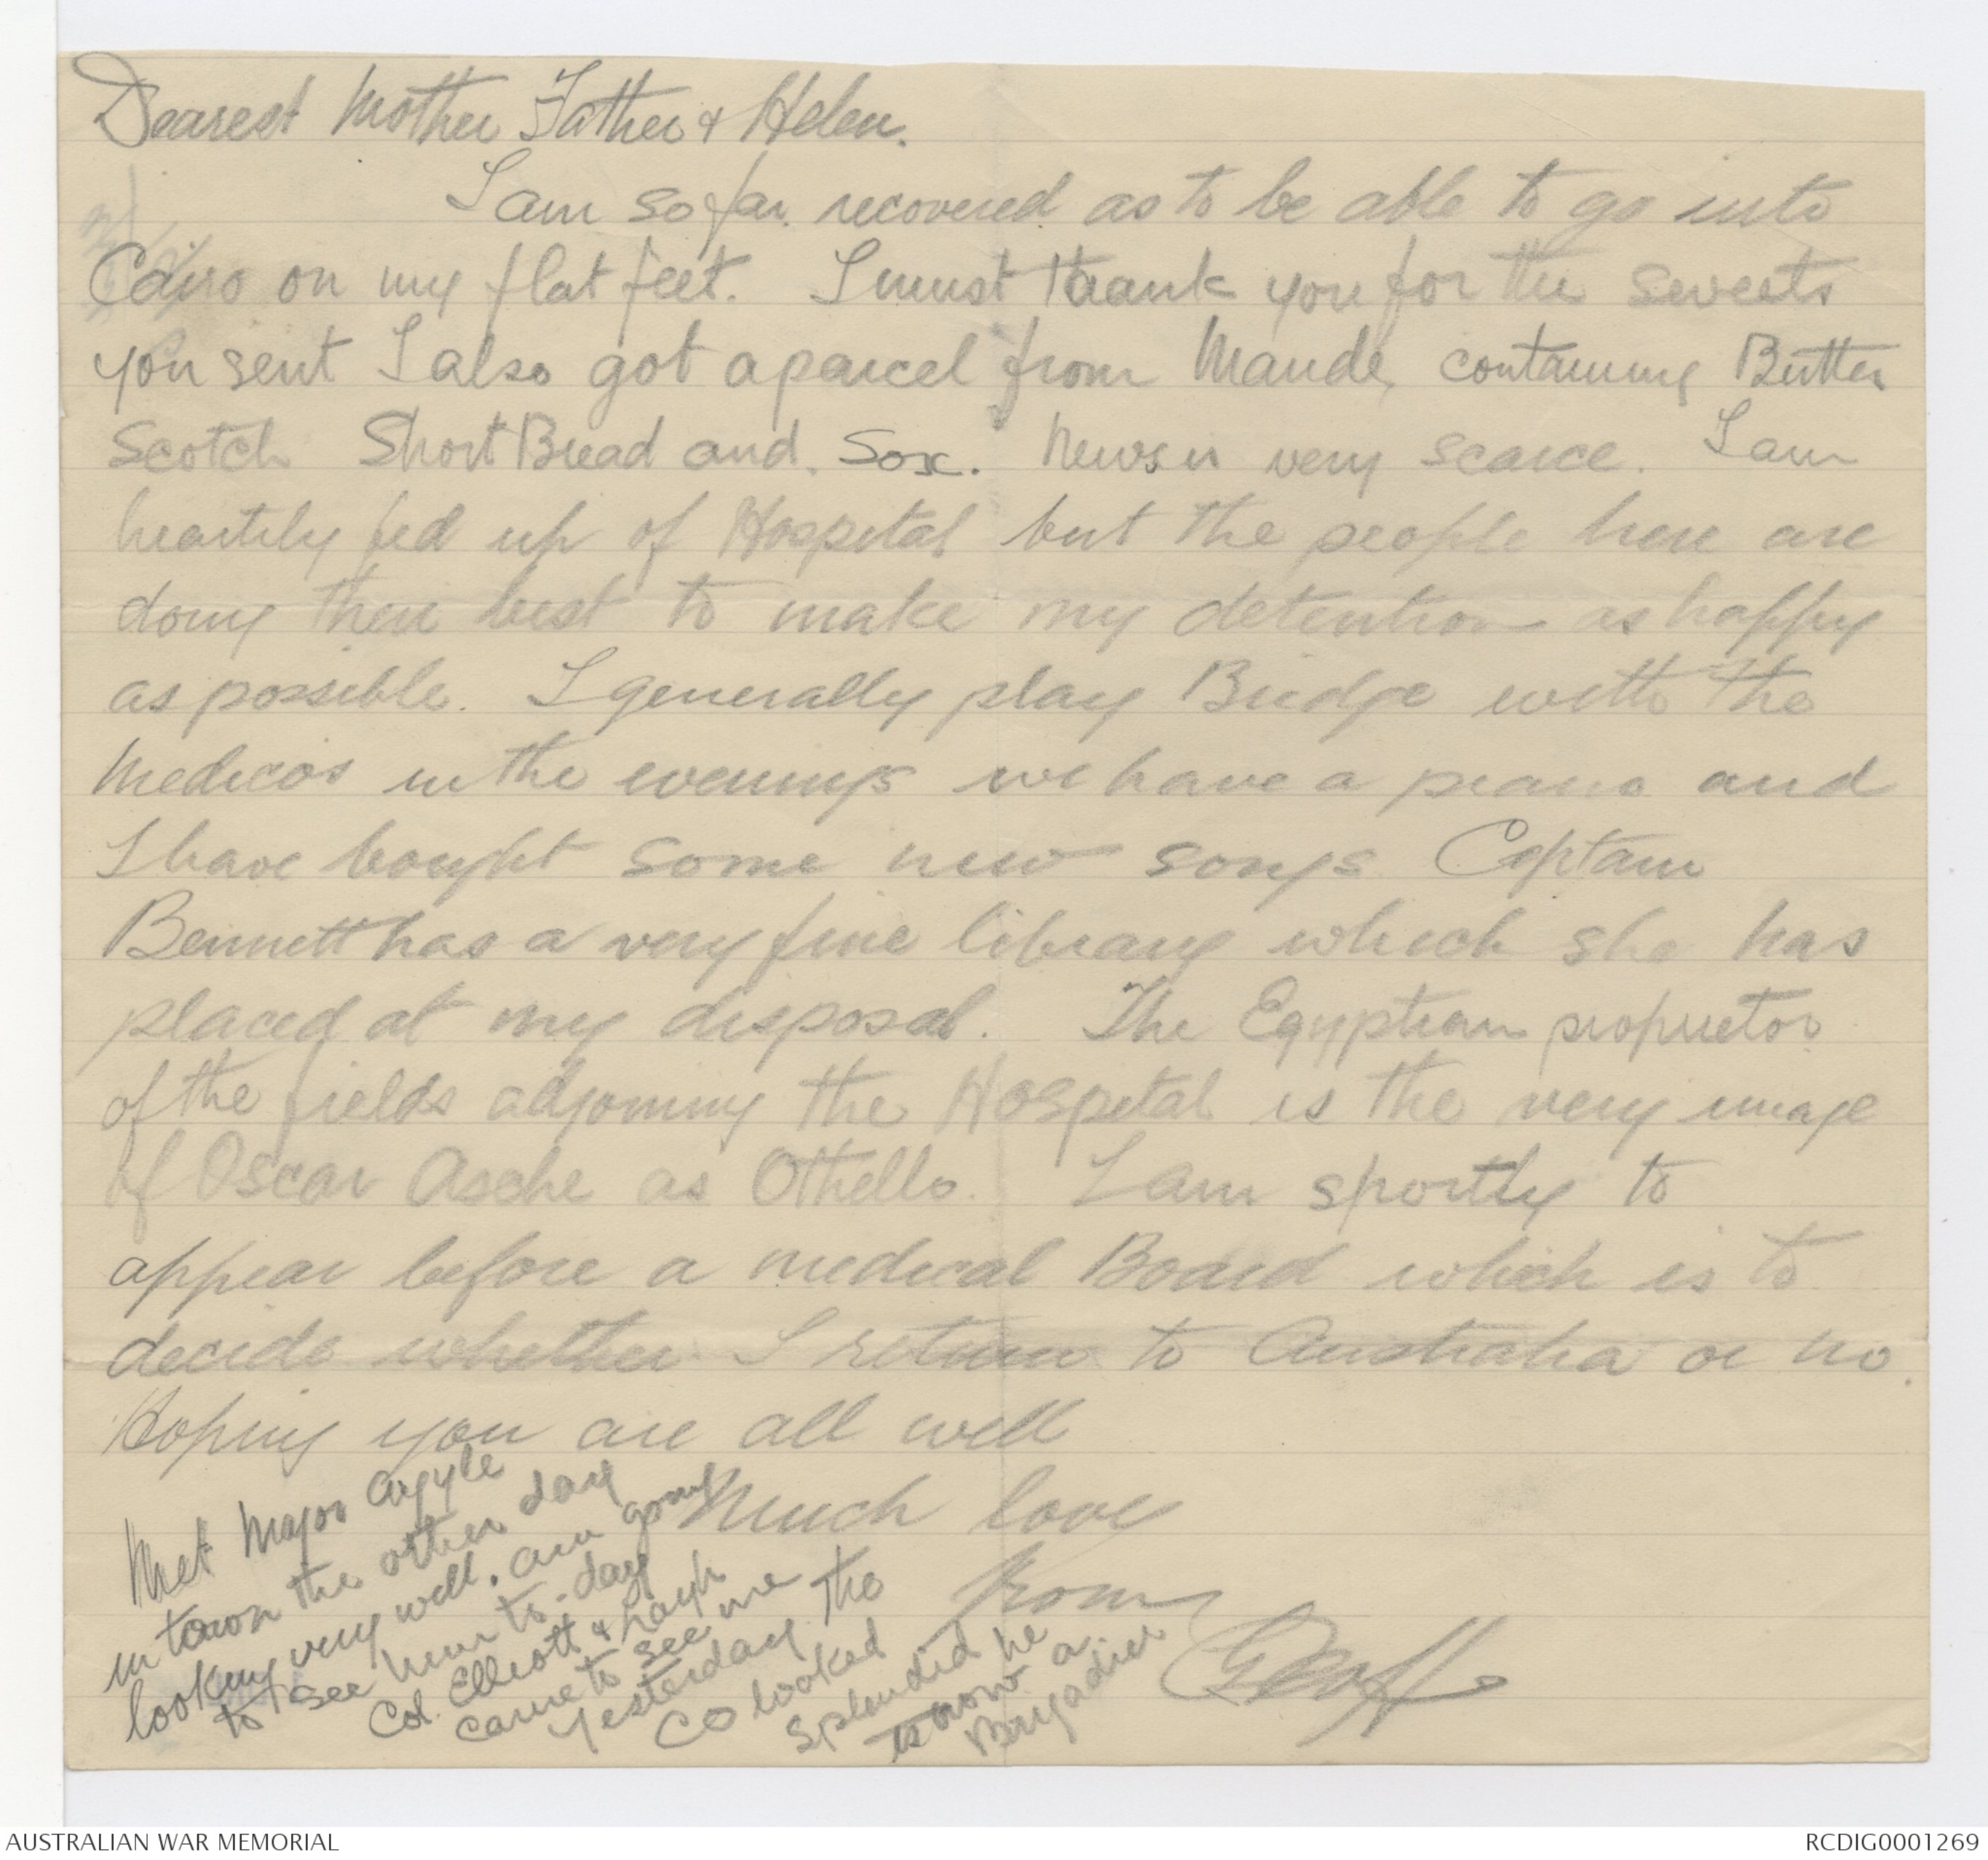 Dearest Mother Father & Helen.
I am so far recovered as to be able to go into
Cairo on my flat feet. I must thank you for the sweets
you sent I also got a parcel from Maude, containing Butter
Scotch Short Bread and. Sox. News is very scarce. I am
heartily fed up of Hospital but the people here are
doing their best to make my detention as happy
as possible. I generally play Bridge with the
Medicos in the evenings we have a piano and
I have bought some new songs Captain
Bennett has a very fine library which she has
placed at my disposal. The Egyptian proprietor
of the fields adjoining the Hospital is the very image
of Oscar Asche as Othello. I am sportly to
appear before a medical Board which is to
decide whether I return to Australia or no.
Hoping you are all well
Much love
from
Geoff
Met Major Argyle
in town the other day
looking very well. am going
to see him to-day
Col. Elliott &
came to see me
yesterday The
CO looked
splendid he
is now a
Brigadier
AUSTRALIAN WAR MEMORIAL
RCDIG0001269